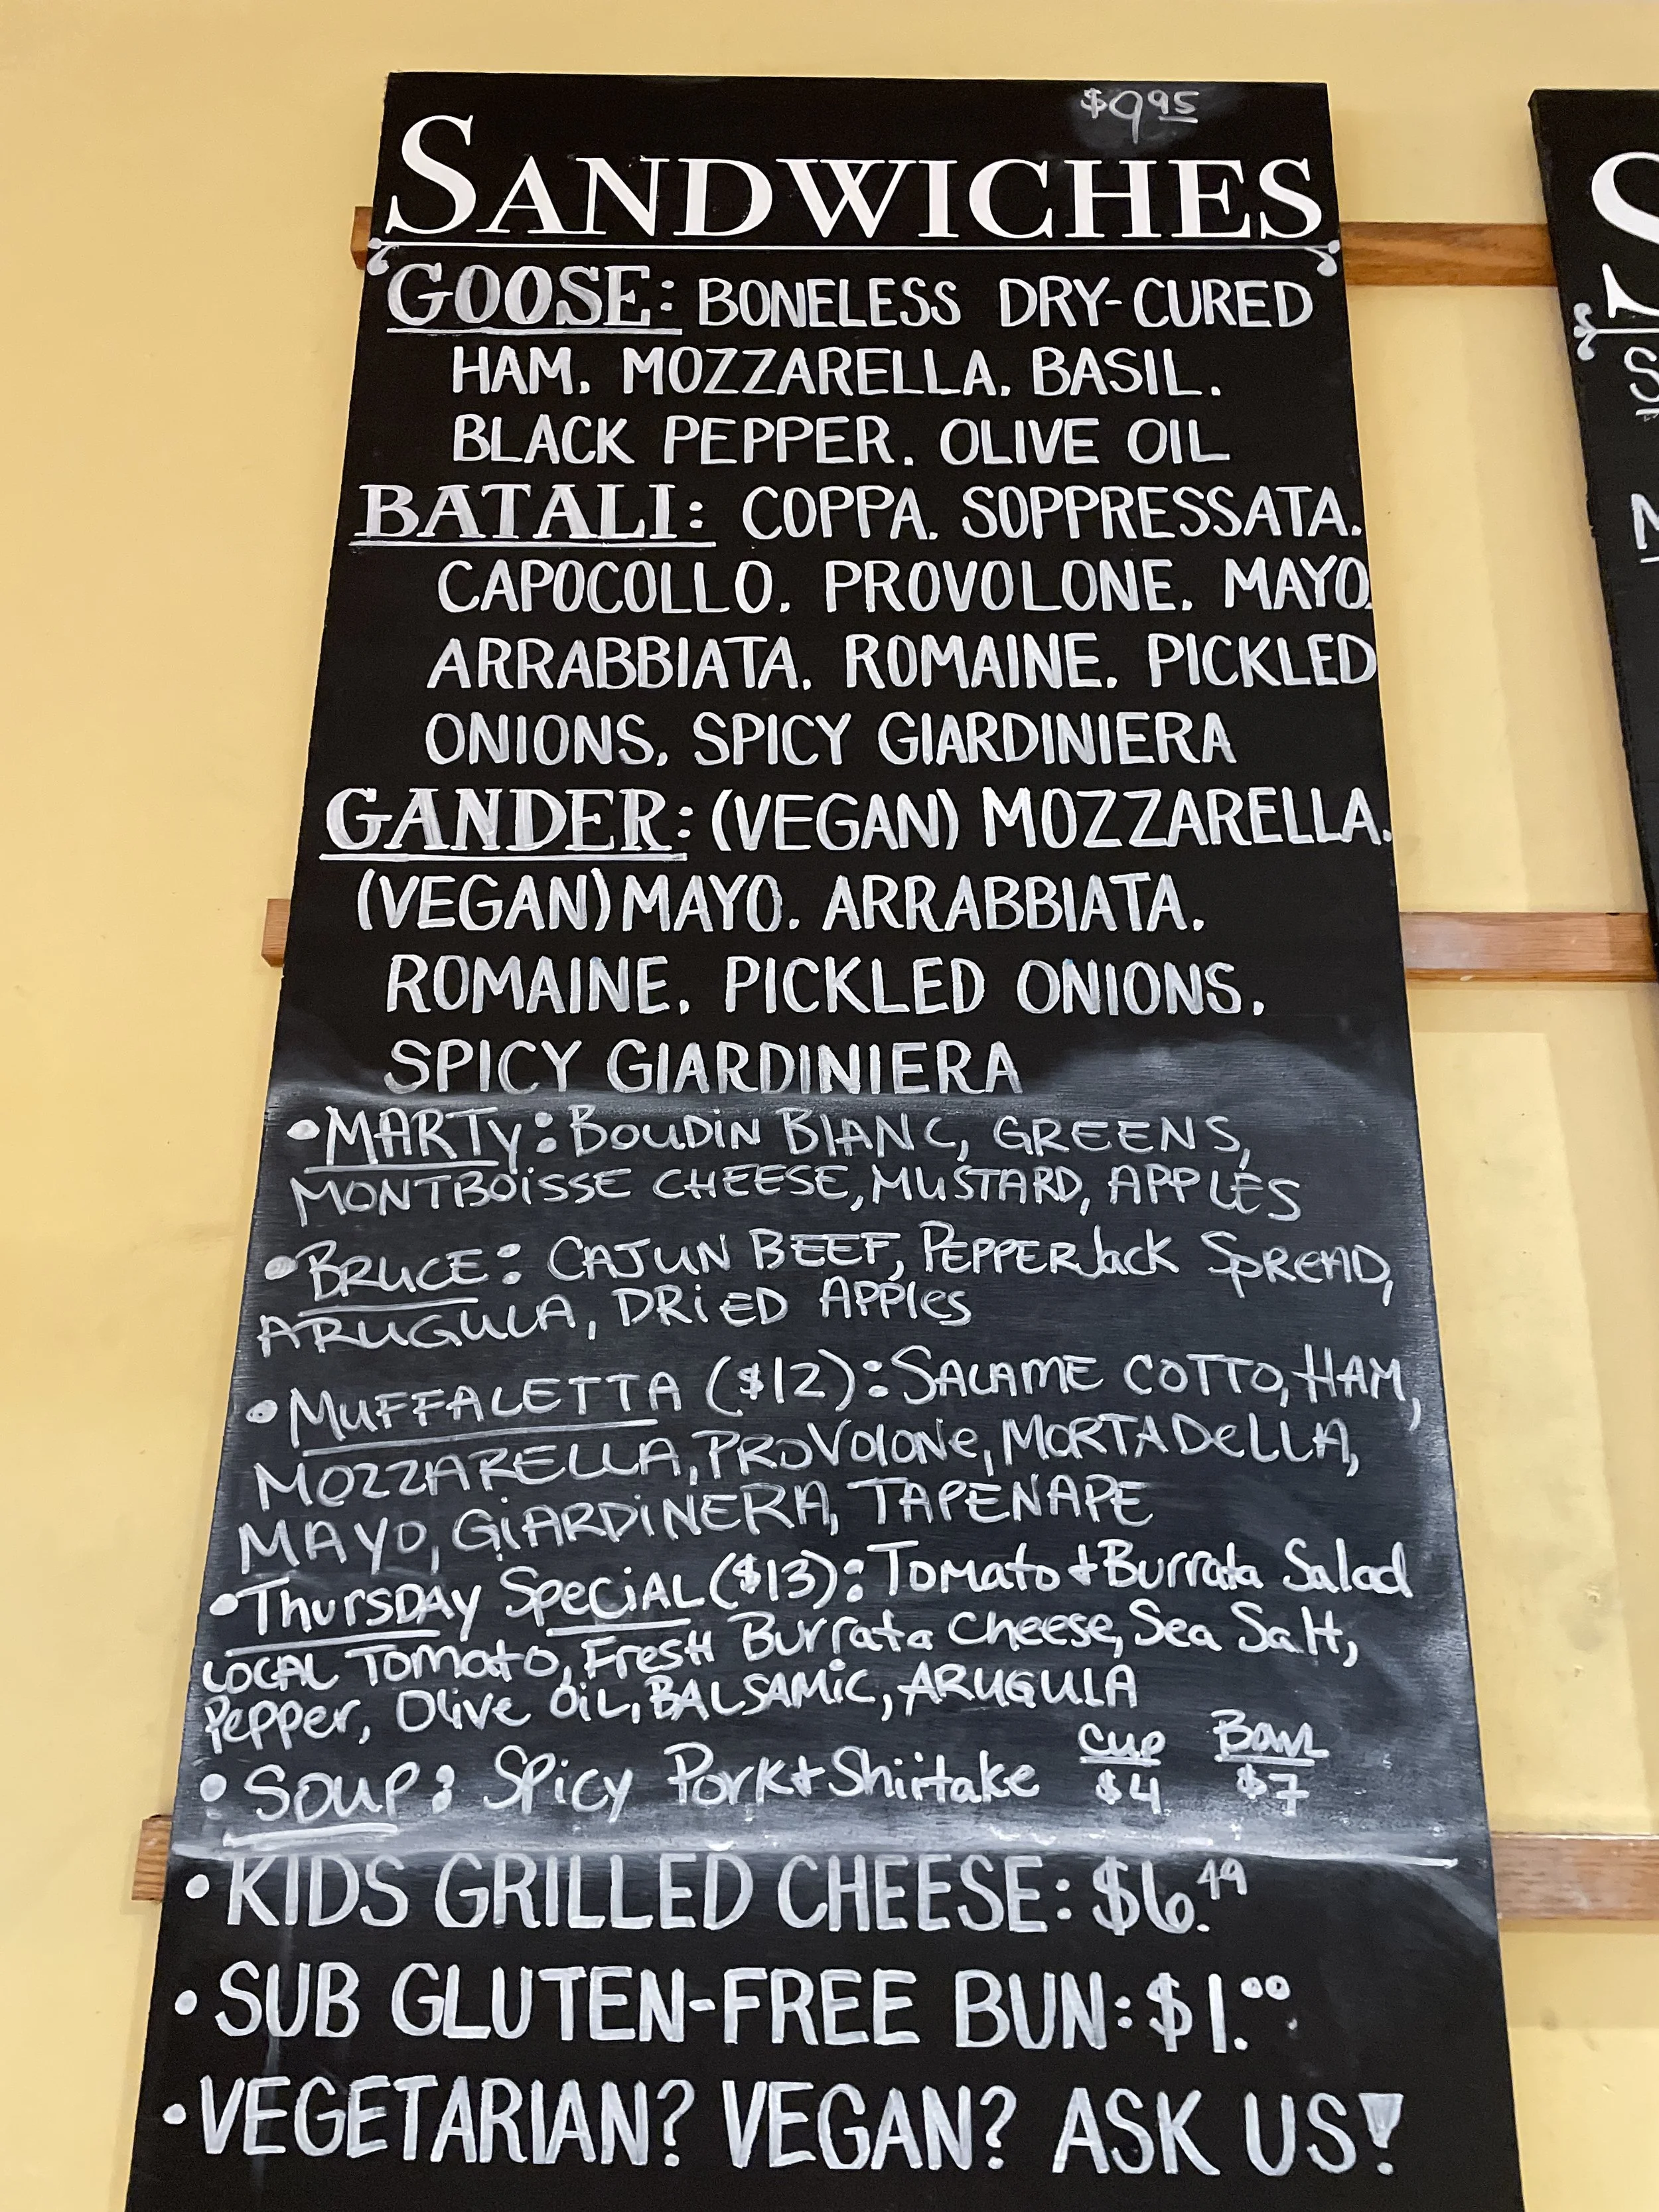 $9.95
SANDWICHES
GOOSE: BONELESS DRY-CURED
HAM, MOZZARELLA, BASIL,
BLACK PEPPER, OLIVE OIL
BATALI: COPPA, SOPPRESSATA,
CAPOCOLLO, PROVOLONE, MAYO,
ARRABBIATA, ROMAINE, PICKLED
ONIONS, SPICY GIARDINIERA
GANDER: (VEGAN) MOZZARELLA,
(VEGAN) MAYO, ARRABBIATA,
ROMAINE, PICKLED ONIONS,
SPICY GIARDINIERA
•MARTY: BOUDIN BLANC, GREENS,
MONTBOISSE CHEESE, MUSTARD, APPLES
•BRUCE: CAJUN BEEF, PEPPERJack SPREAD,
ARUGULA, DRIED APPles
•MUFFALETTA ($12): SALAME COTTO, HAM,
MOZZARELLA, PROVOLONe, MORTADeLLA,
MAYO, GIARDINERA, TAPENAPE
•ThurSDAY SpeciAL ($13): Tomato + Burrata Salad
LOCAL Tomato, FresH Burrata Cheese, Sea Salt,
Pepper, Olive OiL, BALSAMIC, ARUGULA
•SOUP: Spicy Pork + Shiitake Cup $4 Bowl $7
•KIDS GRILLED CHEESE: $6.49
•SUB GLUTEN-FREE BUN: $1.00
•VEGETARIAN? VEGAN? ASK US!